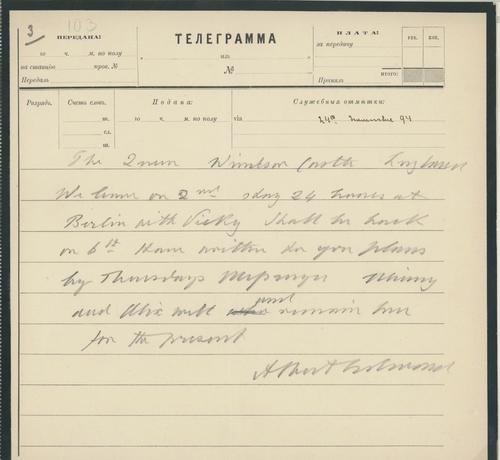 3 103
ПЕРЕДАНА:
го ч. м. по полу
на станцію пров. №
Передалъ
ТЕЛЕГРАММА
изъ
№
ПЛАТА:
за передачу
РУБ. КОП.
ИТОГО:
Принялъ
Разрядъ.
Счетъ словъ.
т.
сл.
ш.
Подана:
го ч. м. по полу
Служебныя отмѣтки:
via
24го 94
The Queen Windsor Castle England
We leave on 2nd stay 24 hours at
Berlin with Vicky Shall be back
on 6th Have written to you plans
by Thursdays Messenger Minny
and Alix will and remain here
for the present
Albert Edward